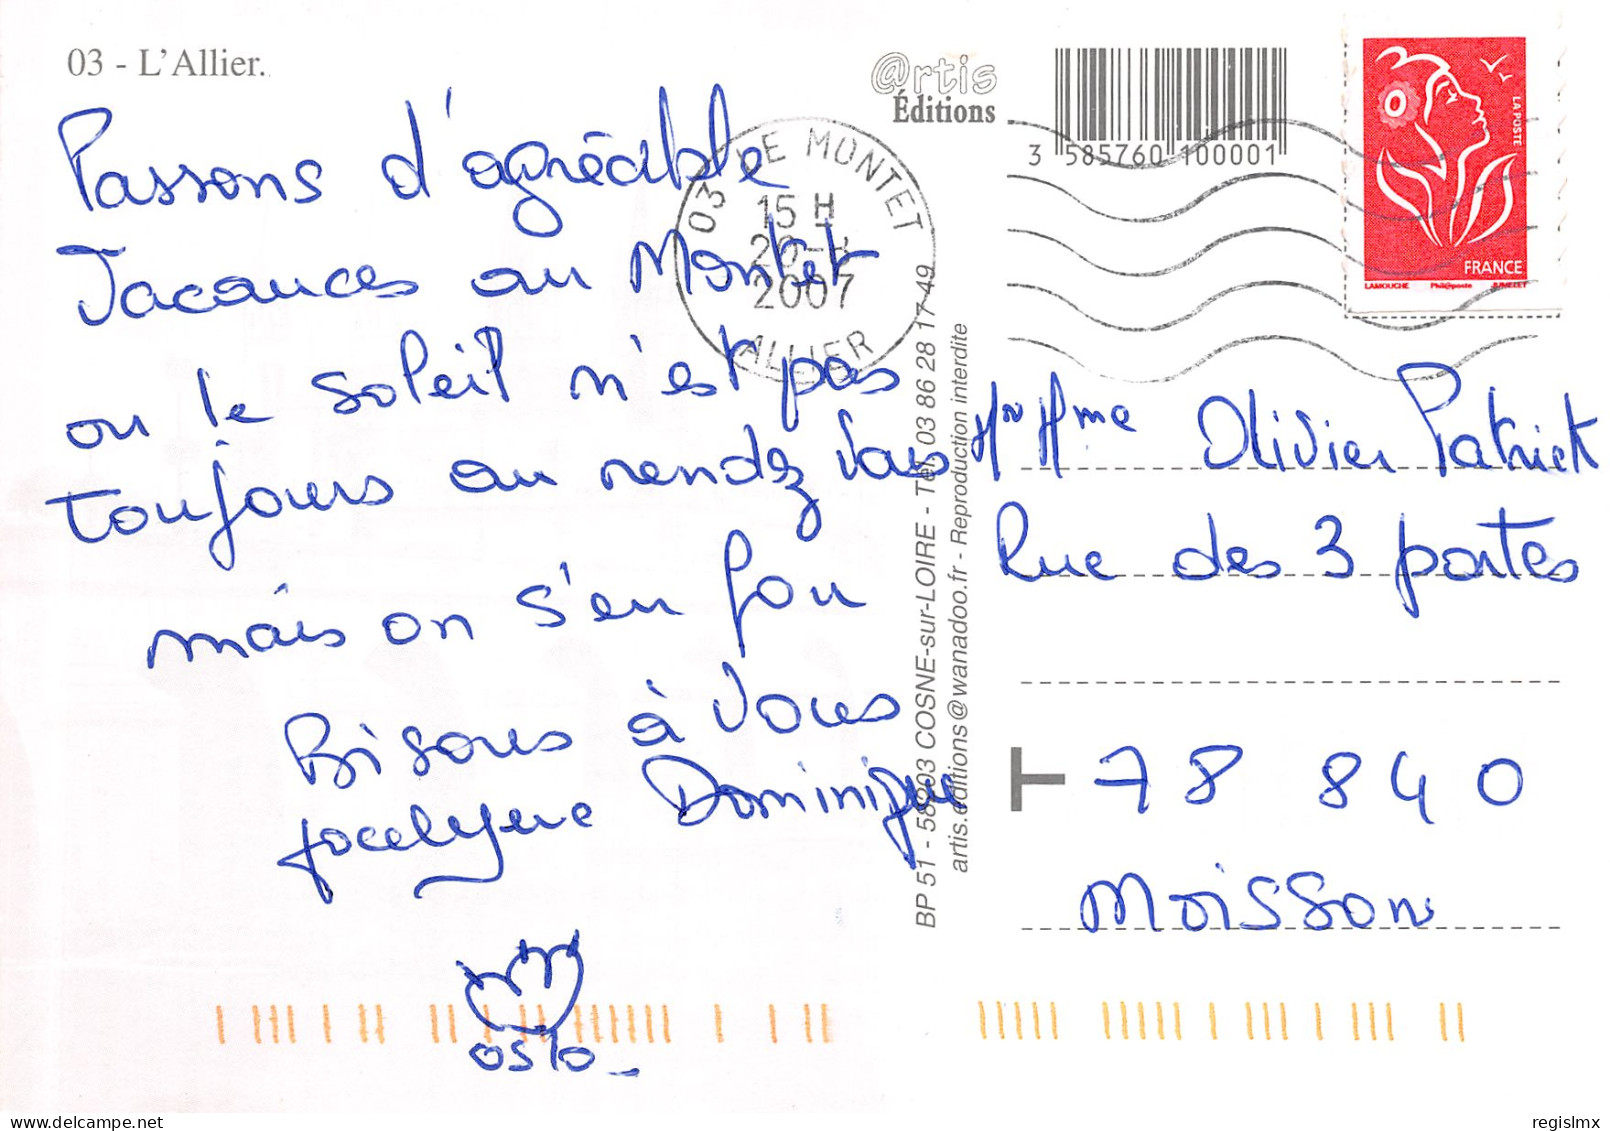 03 - L'Allier.
Passons d'agréable
Vacances au Montet
ou le soleil n'est pas
toujours au rendez vous
mais on s'en fou
Bisous à vous
Jocelyne Dominique
oslo
@rtis
Éditions
3 585760 100001
03 LE MONTET
15 H
2007
ALLIER
LA POSTE
FRANCE
LAMOUCHE Phil@poste JUMELET
BP 51 - 58203 COSNE-sur-LOIRE - Tél. 03 86 28 17 49
artis.editions@wanadoo.fr - Reproduction interdite
Mr Mme Olivier Patrick
Rue des 3 portes
T 78 840
Moisson
regislmx